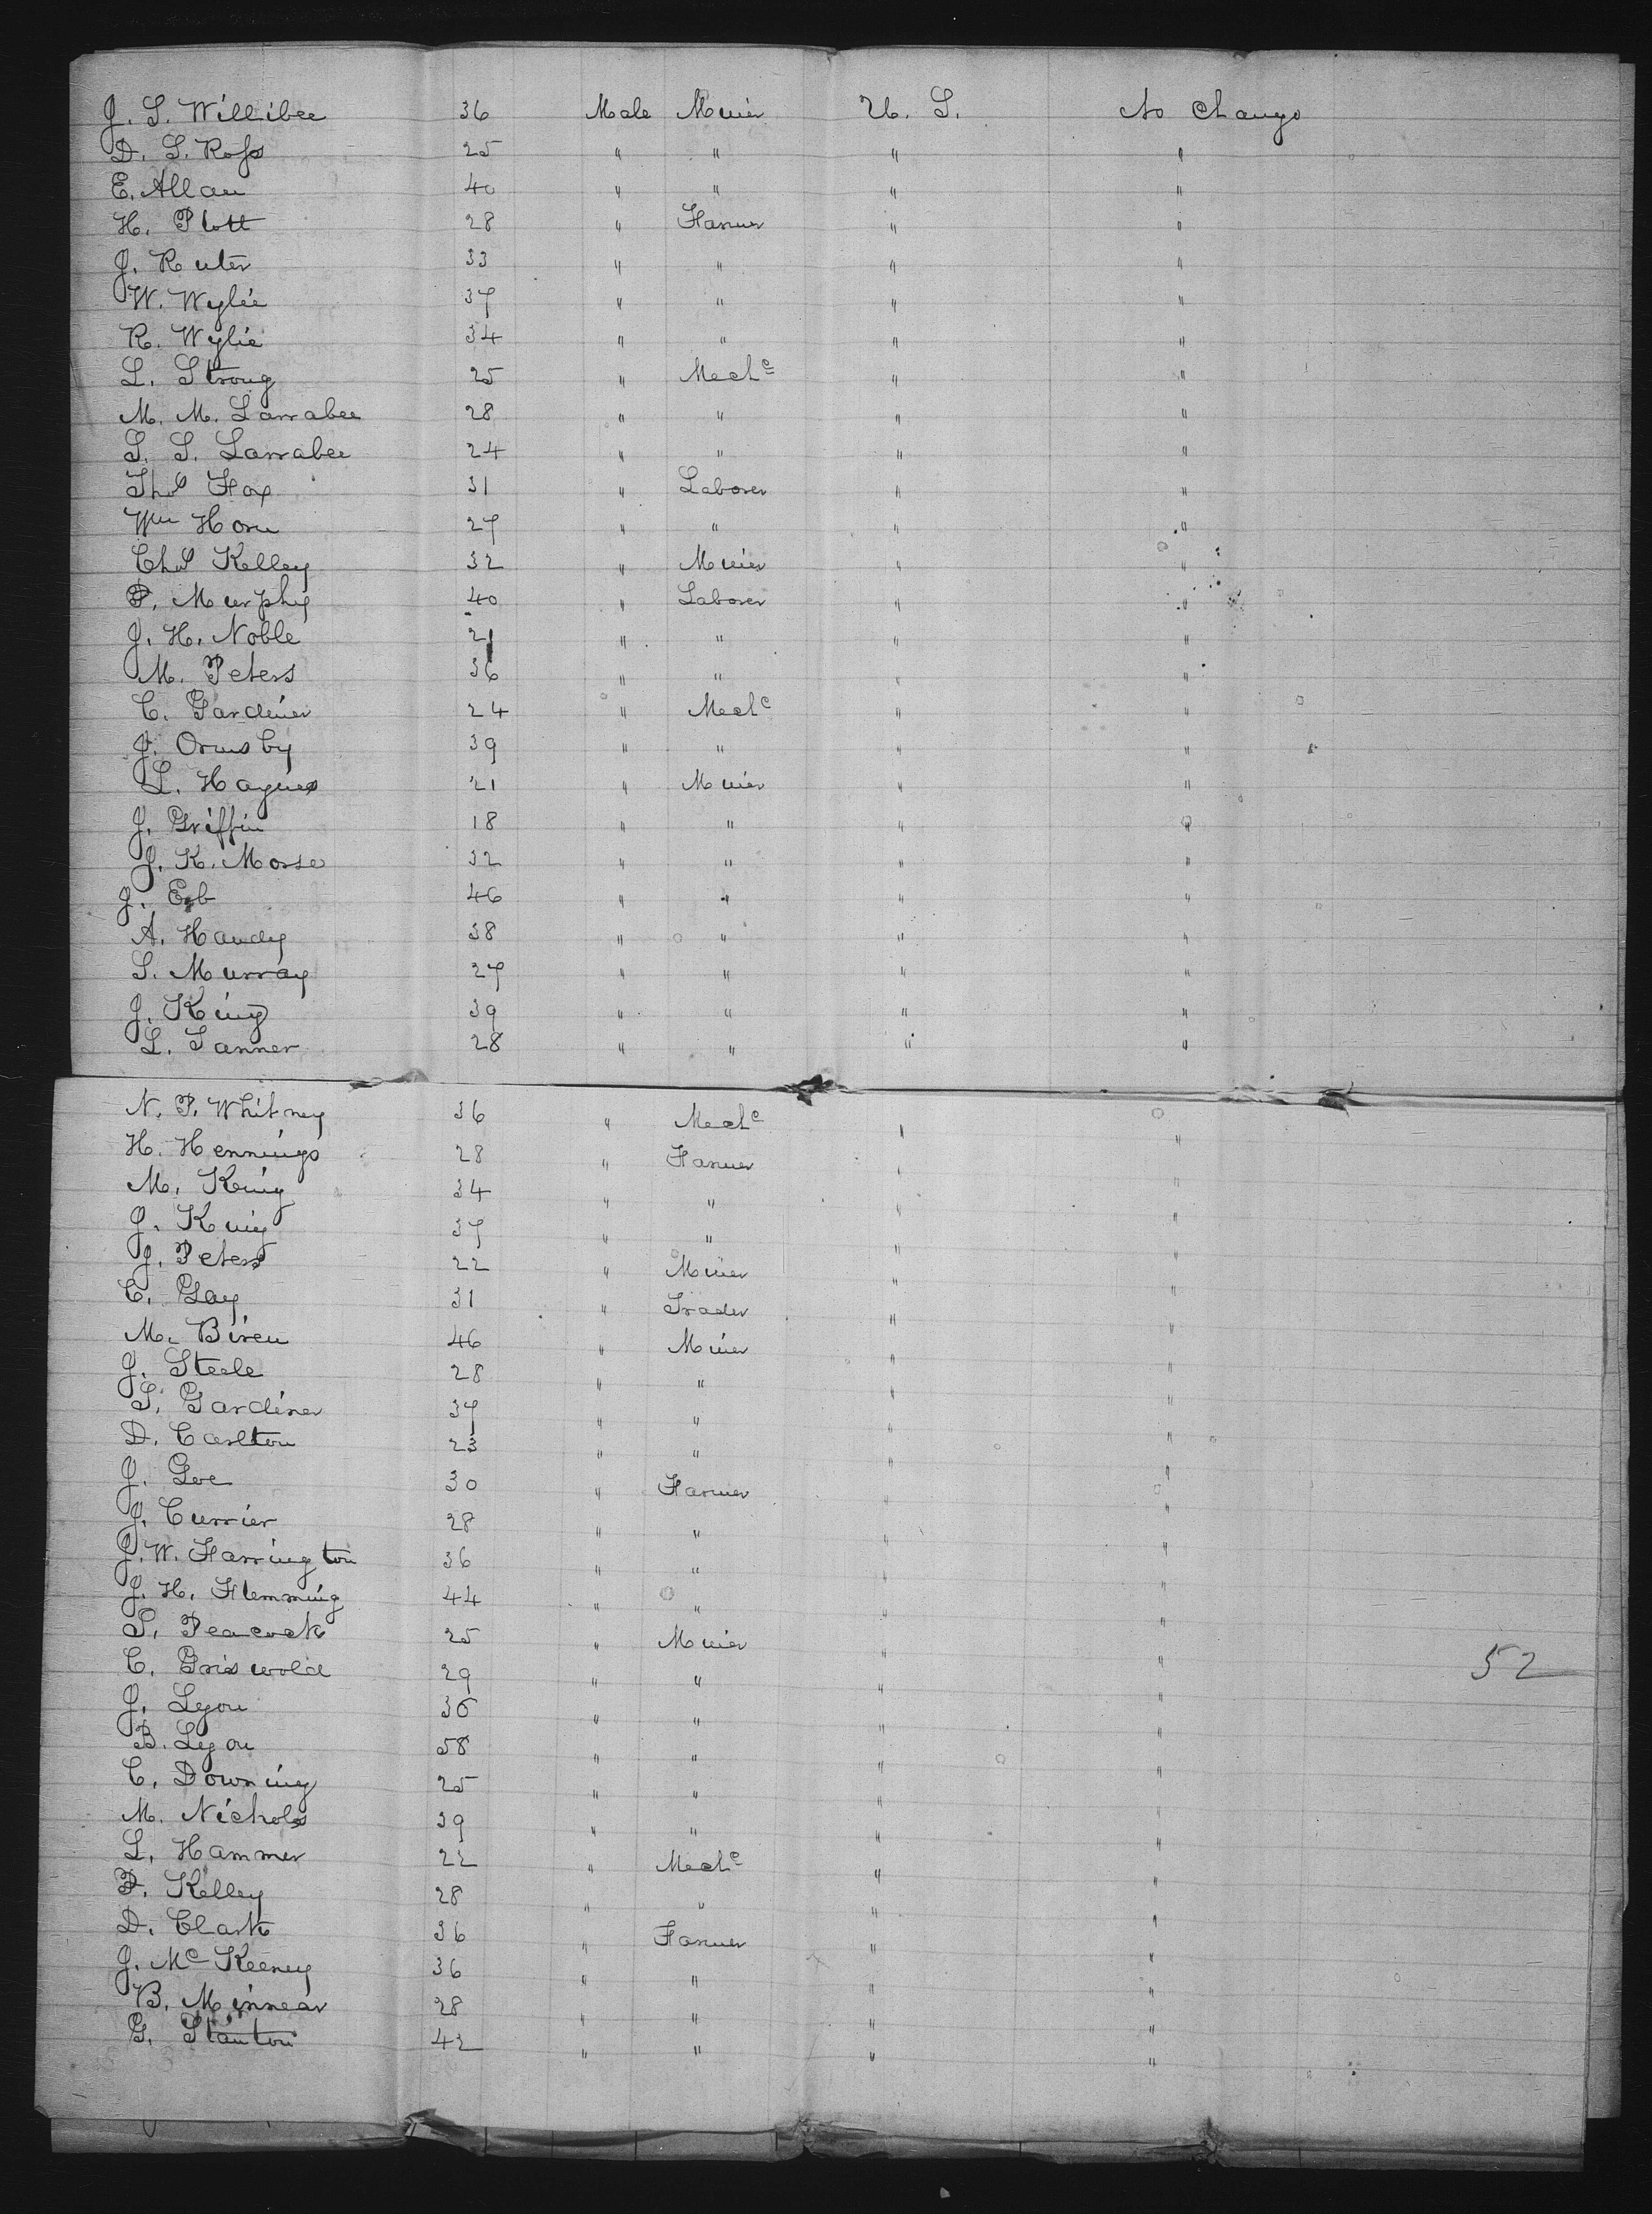 J. S. Willibee 36 Male Miner U. S. No Change
D. S. Ross 25 " " " "
E. Allan 40 " " " "
H. Plott 28 " Farmer " "
J. Ruter 33 " " " "
W. Wylie 37 " " " "
R. Wylie 34 " " " "
L. Strong 25 " Mech^c " "
M. M. Larrabee 28 " " " "
S. S. Larrabee 24 " " " "
Tho^s Fox 31 " Laborer " "
W^m Horn 27 " " " "
Cha^s Kelley 32 " Miner " "
P. Murphy 40 " Laborer " "
J. H. Noble 21 " " " "
M. Peters 36 " " " "
C. Gardiner 24 " Mech^c " "
J. Ormsby 39 " " " "
L. Haynes 21 " Miner " "
J. Griffin 18 " " " "
J. K. Morse 32 " " " "
J. Erb 46 " " " "
A. Handy 38 " " " "
S. Murray 27 " " " "
J. King 39 " " " "
L. Tanner 28 " " " "
N. P. Whitney 36 " Mech^c " "
H. Hennings 28 " Farmer " "
M. King 34 " " " "
J. King 37 " " " "
J. Peters 22 " Miner " "
C. Gay 31 " Trader " "
M. Biren 46 " Miner " "
J. Steele 28 " " " "
S. Gardiner 37 " " " "
D. Carlton 23 " " " "
J. Goe 30 " Farmer " "
J. Currier 28 " " " "
J. W. Farrington 36 " " " "
J. H. Flemming 44 " " " "
S. Peacock 25 " Miner " "
C. Griswold 29 " " " " 52
J. Lyon 36 " " " "
B. Lyon 58 " " " "
C. Downing 25 " " " "
M. Nichols 39 " " " "
L. Hammer 22 " Mech^c " "
P. Kelley 28 " " " "
D. Clark 36 " Farmer " "
J. M^c Keeney 36 " " " "
B. Minnear 28 " " " "
G. Stanton 42 " " " "